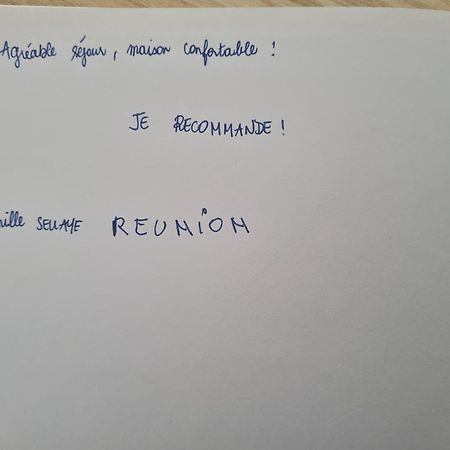 Agréable séjour, maison confortable !
JE RECOMMANDE !
REUNION